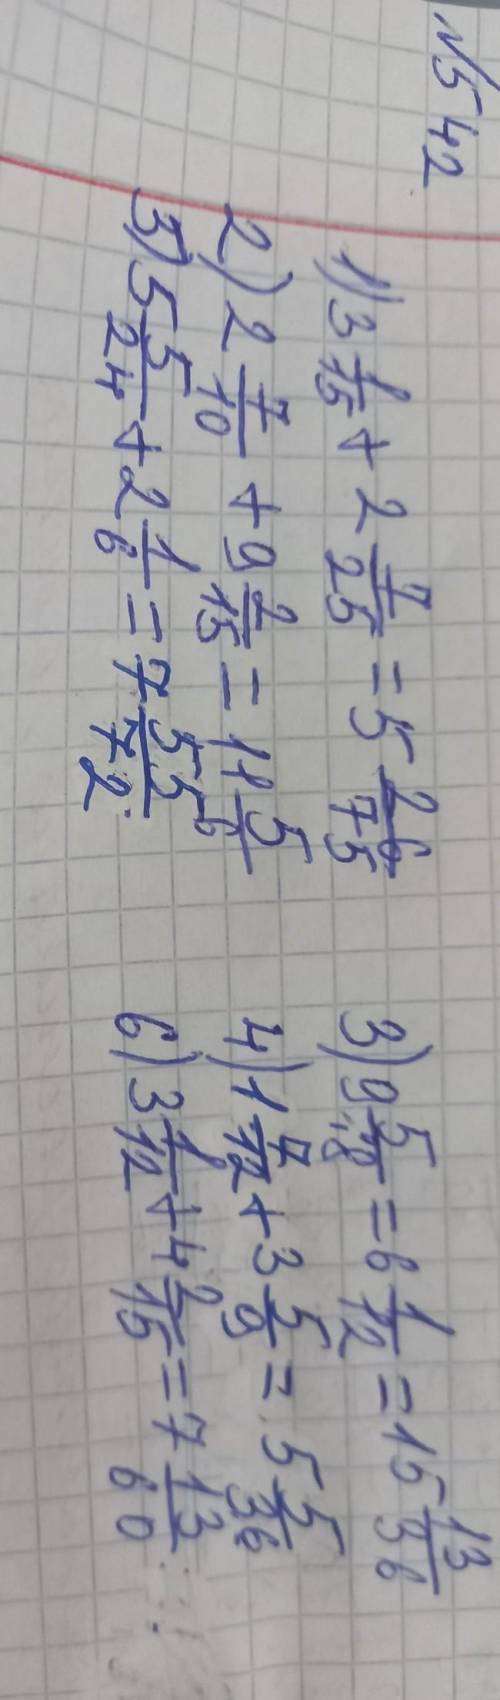 №542
1) 3 1/15 + 2 7/25 = 5 26/75
2) 2 7/10 + 9 2/15 = 11 5/6
5) 5 5/24 + 2 1/6 = 7 55/72
3) 9 5/18 = 6 1/12 = 15 13/36
4) 1 7/12 + 3 5/9 = 5 5/36
6) 3 1/12 + 4 2/15 = 7 13/60